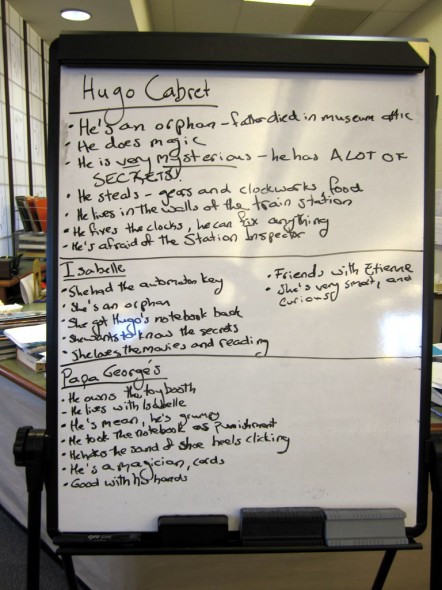 Hugo Cabret
• He's an orphan - father died in museum attic
• He does magic
• He is very mysterious - he has A LOT OF
SECRETS!
• He steals - gears and clockworks, food
• He lives in the walls of the train station
• He fixes the clocks, he can fix anything
• He's afraid of the Station Inspector
Isabelle
• She had the automaton key
• She's an orphan
• She got Hugo's notebook back
• She wants to know the secrets
• She loves the movies and reading
• Friends with Etienne
• She's very smart, and
curious
Papa Georges
• He owns the toy booth
• He lives with Isabelle
• He's mean, he's grumpy
• He took the notebook as punishment
• He hates the sound of shoe heels clicking
• He's a magician, cards
• Good with his hands